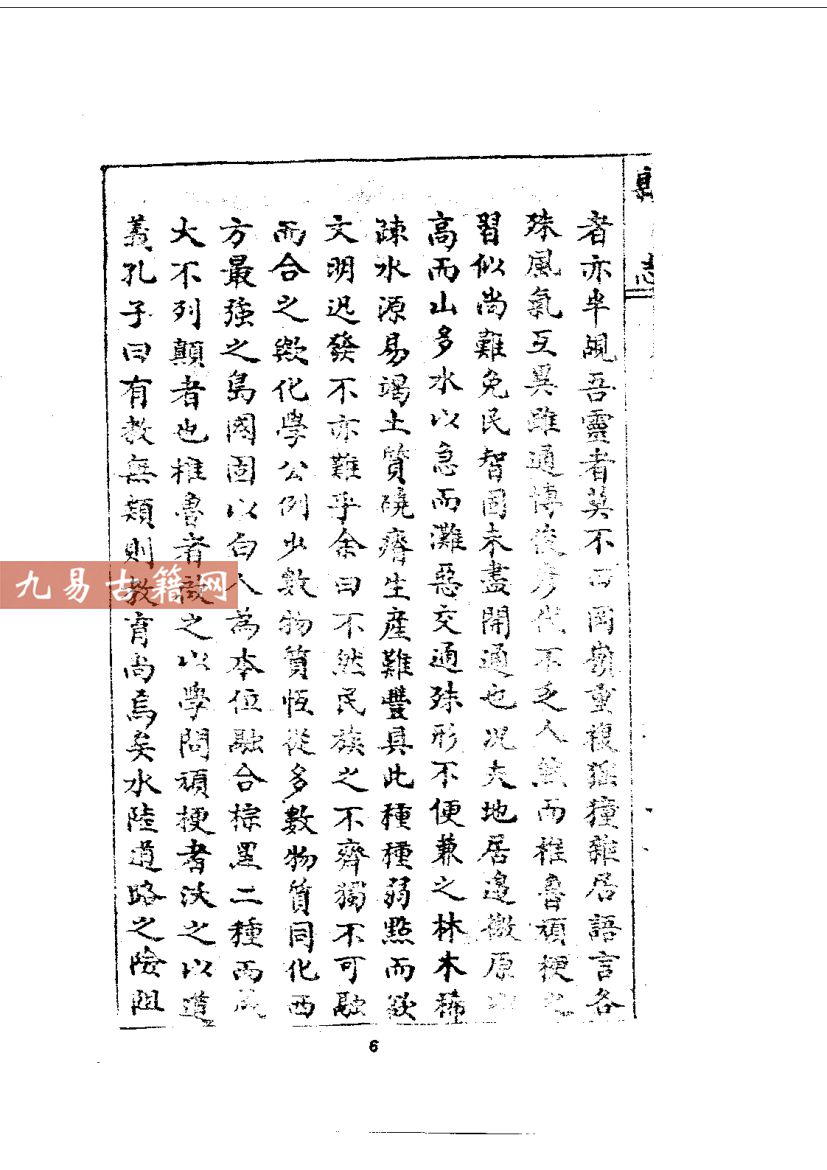 縣志
者亦半覘吾靈者莫不曰岡嶺重複猺獞雜居語言各
殊風氣互異雖通博俊彥代不乏人然而椎魯頑梗之
習似尚難免民智固未盡開通也况夫地居邊徼原
高而山多水以急而灘惡交通殊形不便兼之林木稀
疎水源易竭土質磽瘠生產難豐具此種種弱點而欲
文明迅發不亦難乎余曰不然民族之不齊獨不可融
而合之歟化學公例少數物質恆從多數物質同化西
方最強之島國固以白人為本位融合棕黑二種而成
大不列顛者也椎魯者啟之以學問頑梗者沃之以道
義孔子曰有教無類則教育尚焉矣水陸道路之險阻
九易古籍网
6